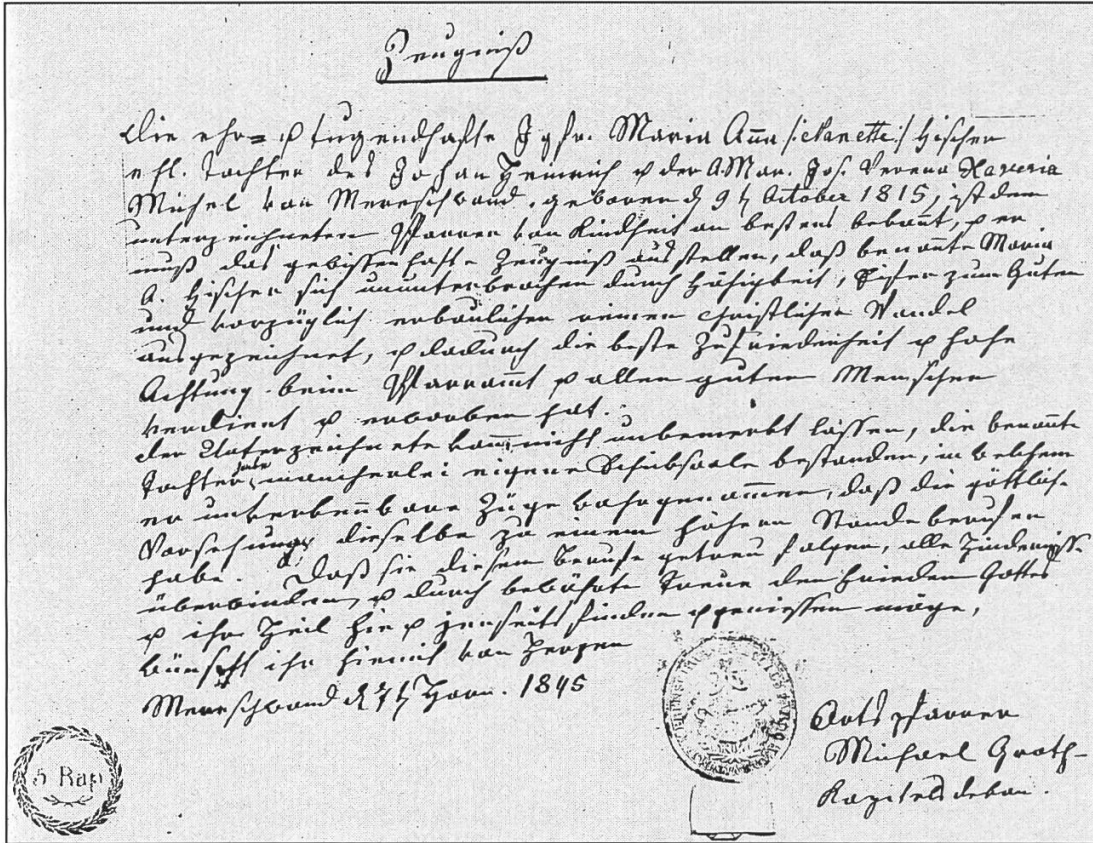 Zeugniß
Die ehr= & tugendhafte Jgfr. Maria Aña /:Nanette:/ Fischer
ehl. Tochter des Johan Heinrich & der A. Mar. Jos. Verena Xaveria
Michel von Merenschwand, geboren d 9t October 1815, ist dem
unterzeichneten Pfarrer von Kindheit an bestens bekañt, & er
muß das gewissenhafte Zeugniß ausstellen, daß benañte Maria
A. Fischer sich ununterbrochen durch Fähigkeit, Eifer zum Guten
und vorzüglich erbaulichen reinen christlichen Wandel
ausgezeichnet, & dadurch die beste Zufriedenheit & hohe
Achtung beim Pfarramt & allen guten Menschen
verdient & erworben hat.
der Unterzeichnete kañ nicht unbemerkt lassen, die benañte
Tochter habe mancherlei eigene Schiksaale bestanden, in welchem
er unverkeñbare Züge wahrgenom̃en, daß die göttliche
Vorsehung dieselbe zu einem höhern Stande berufen
habe. Daß sie diesem Berufe getreu folgen, alle Hinderniße
überwinden, & durch bewährte Treue den Frieden Gottes
& ihr Heil hie & jenseits finden & geniessen möge,
wünscht ihr hiemit von Herzen
Merenschwand d 7t Horn. 1845
Ortspfarrer
Michael Groth-
Kapitelsdekan.
5 Rap